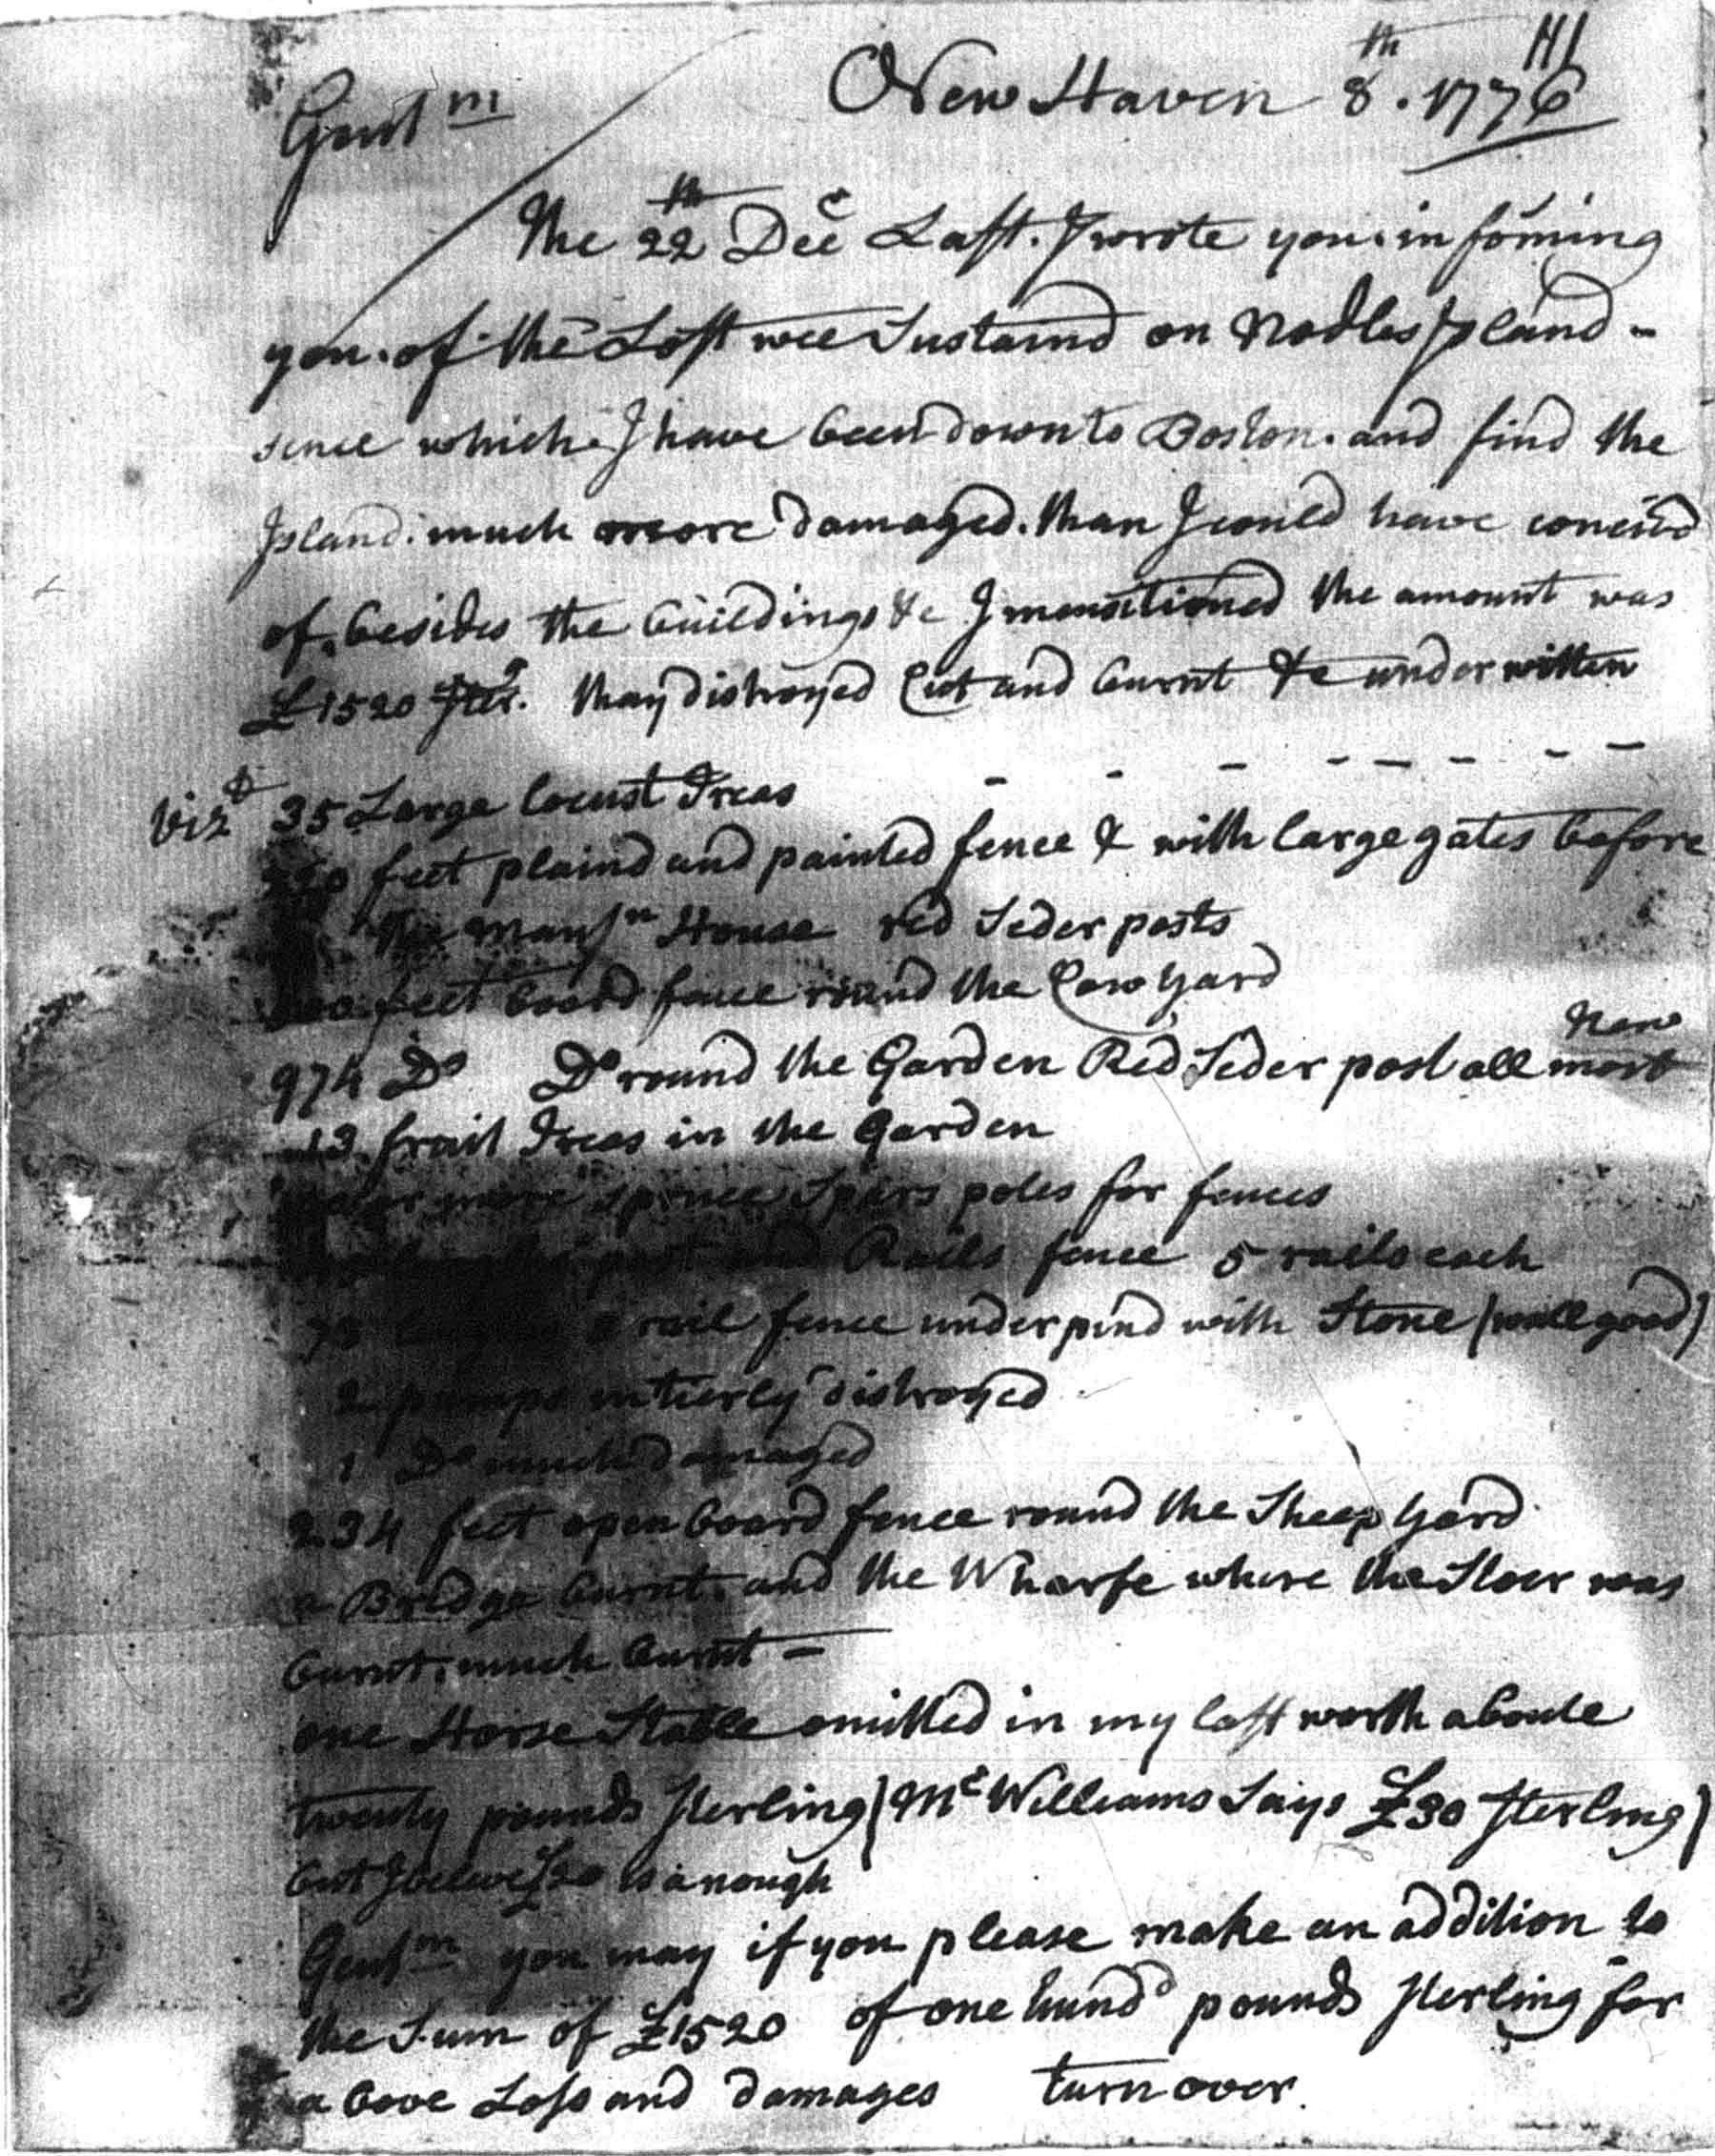 New Haven 8th. 1776
Gentm
The 22th Decr Last. I wrote you. in foming
you. of the Lost wee Sustaind on Nodles Island -
since which. I have been down to Boston. and find the
Island. much more damaged. than I could have conceivd
of. besides the buildings &c I menntioned the amount was
£1520 Sterg. thay distroyed Cut and burnt &c under written
Vizt 35 Large locust Treas - - - - - - - -
feet plaind and painted fence & with large gates before
the Mansn House red Seder posts
feet board fence round the Cow Yard
974 Do Do round the Garden Red Seder post all most New
13 frait Treas in the Garden
or more spruce Spars poles for fences
post and Rails fence 5 rails each
rail fence under pind with Stone (wall good)
2 pumps intierly distroyed
1 Do much damaged
234 feet open board fence round the Sheep Yard
a Bridge burnt. and the Wharfe where the Stoer was
burnt. much burnt -
one Horse Stable omitted in my last worth aboute
twenty pounds Sterling (Mr Williams Says £30 Sterling)
but I beleve £20 is anough
Gentm you may if you please make an addition to
the Sum of £1520 of one hundd pounds Sterling for
a bove Loss and damages turn over.